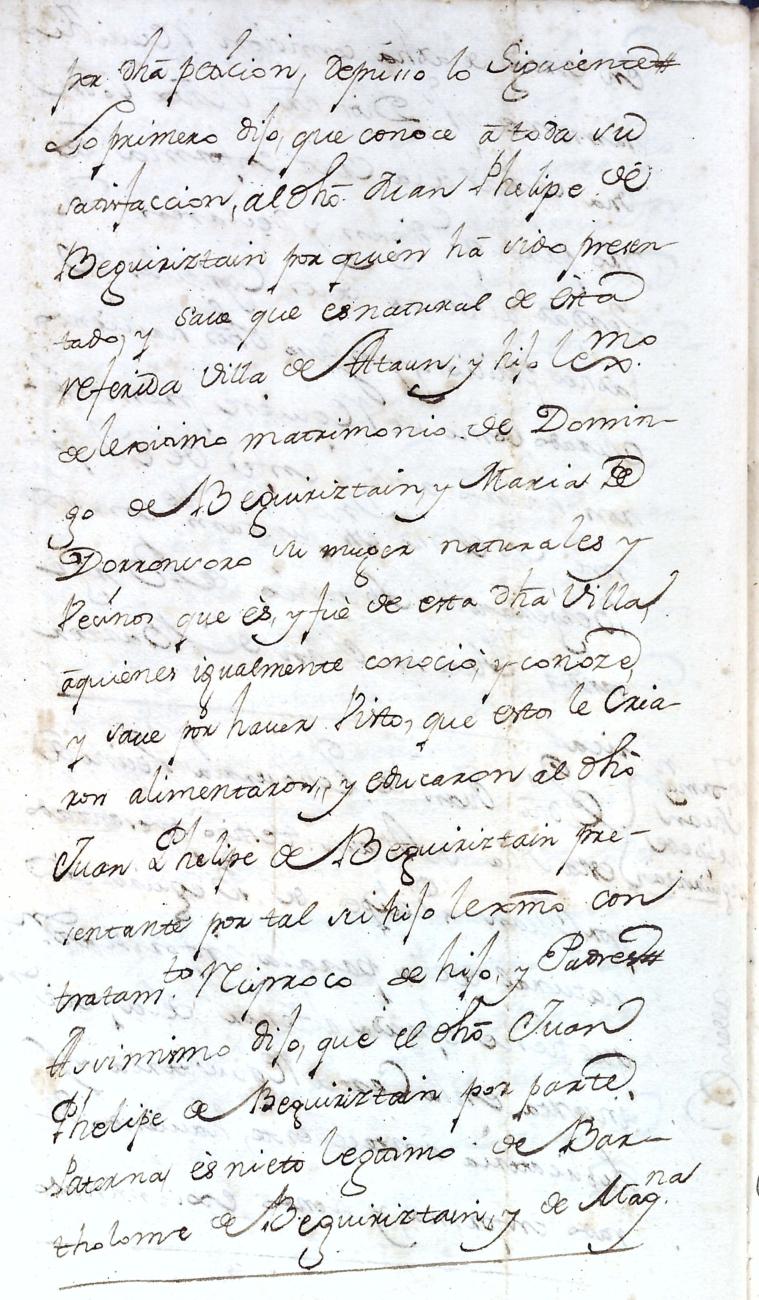 por dhã peticion, depusso lo Siguiente#
Lo primero dijo, que conoce ã toda su
satisfaccion, al dhõ Juan Phelipe de
Beguiriztain por quien hã sido presen-
tado, y save que es natural de esta
referida Villa de Ataun, y hijo lexmo.
de lexitimo matrimonio de Domin-
go de Beguiriztain, y Maria de
Dorronsoro su muger naturales y
Vecinos que ès, y fuè de esta dhã Villa,
ãquienes igualmente conociò, y conoze,
y save por haver Visto, que estos le Cria-
ron alimentaron, y educaron al dhõ
Juan Phelipe de Beguiriztain pre-
sentante por tal su hijo lexmo con
tratamto. Reciproco de hijo, y Padres#
Assimismo dijo, que el dhõ Juan
Phelipe de Beguiriztain por parte
Paterna ès nieto legitimo de Bar-
tholome de Beguiriztain, y de Magna.